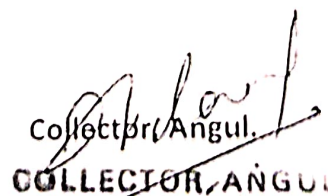 Collector, Angul.
COLLECTOR, ANGUL